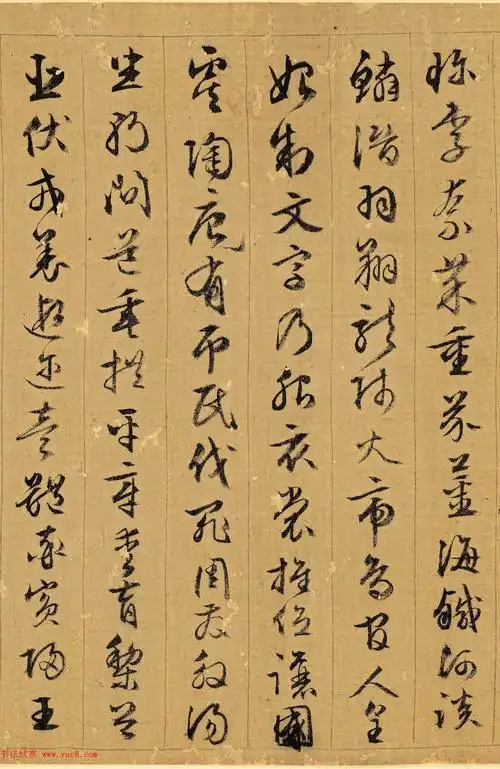 珍李柰菜重芥薑海鹹河淡
鱗潛羽翔龍師火帝鳥官人皇
始制文字乃服衣裳推位讓國
虞陶唐有吊民伐罪周發殷湯
坐朝問道垂拱平章愛育黎首
臣伏戎羌遐邇壹體率賓歸王
书法欣赏 www.yac8.com